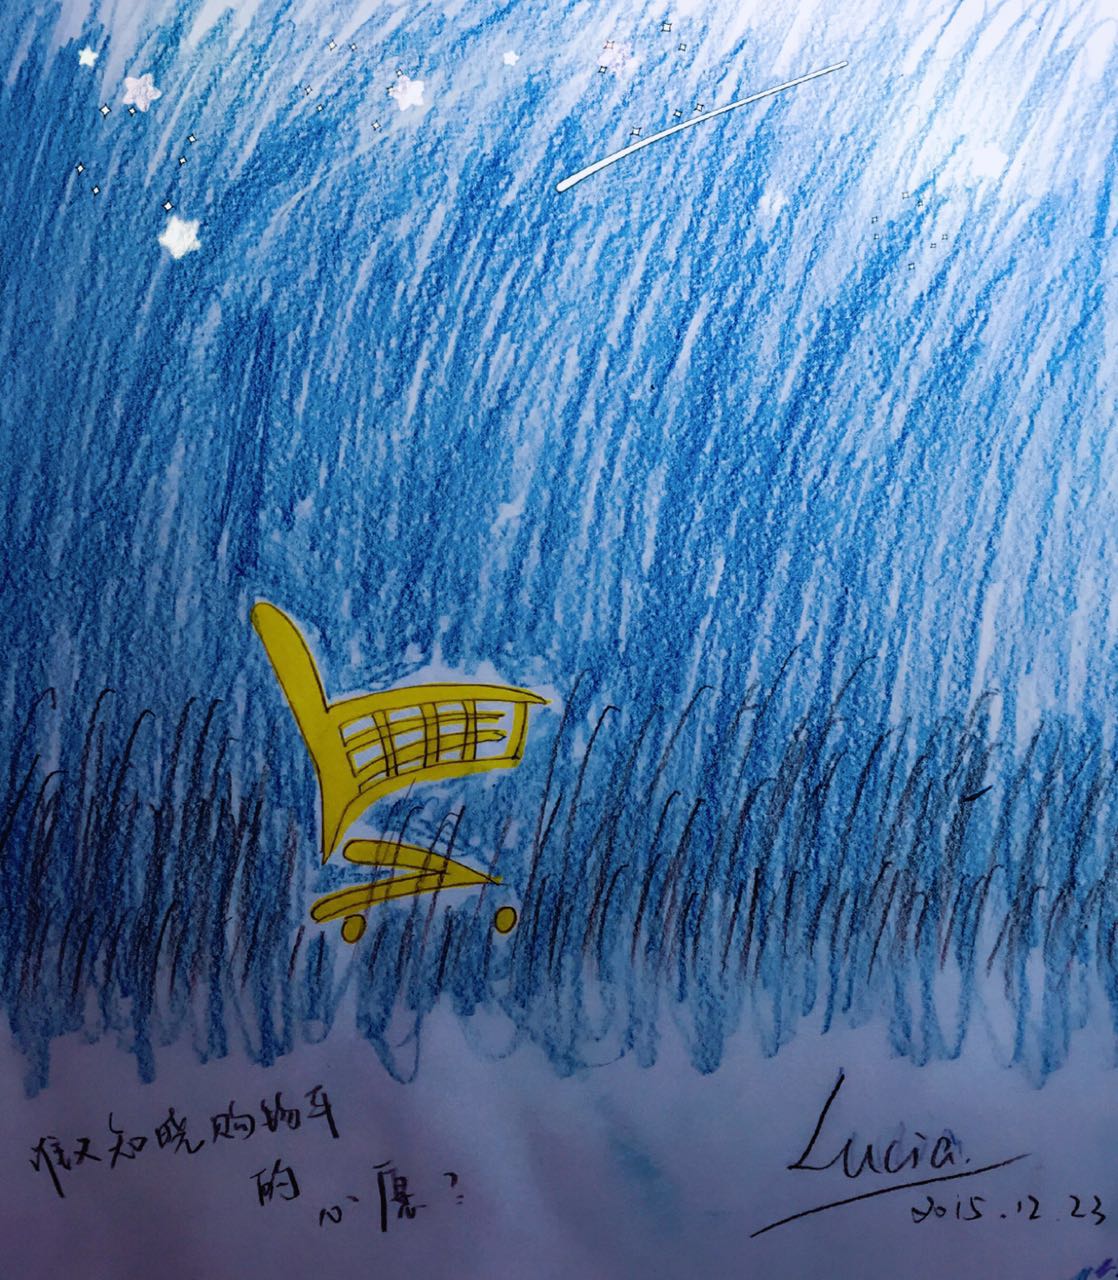 谁又知晓购物车
的心愿？
Lucia.
2015.12.23